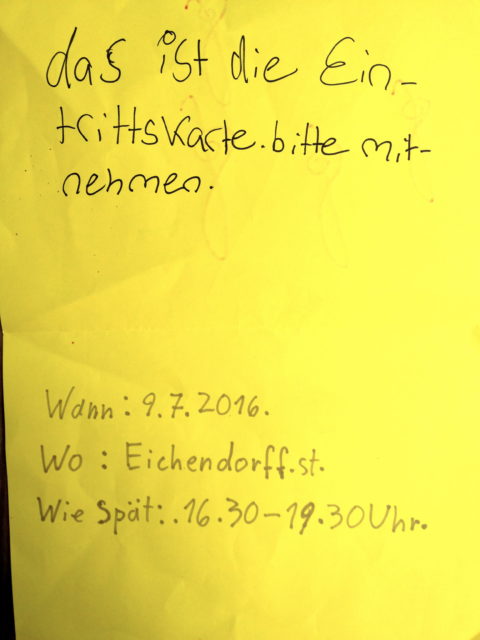 das ist die Ein-
trittskarte. bitte mit-
nehmen.
Wann: 9.7.2016.
Wo : Eichendorff.st.
Wie Spät:.16.30-19.30Uhr.